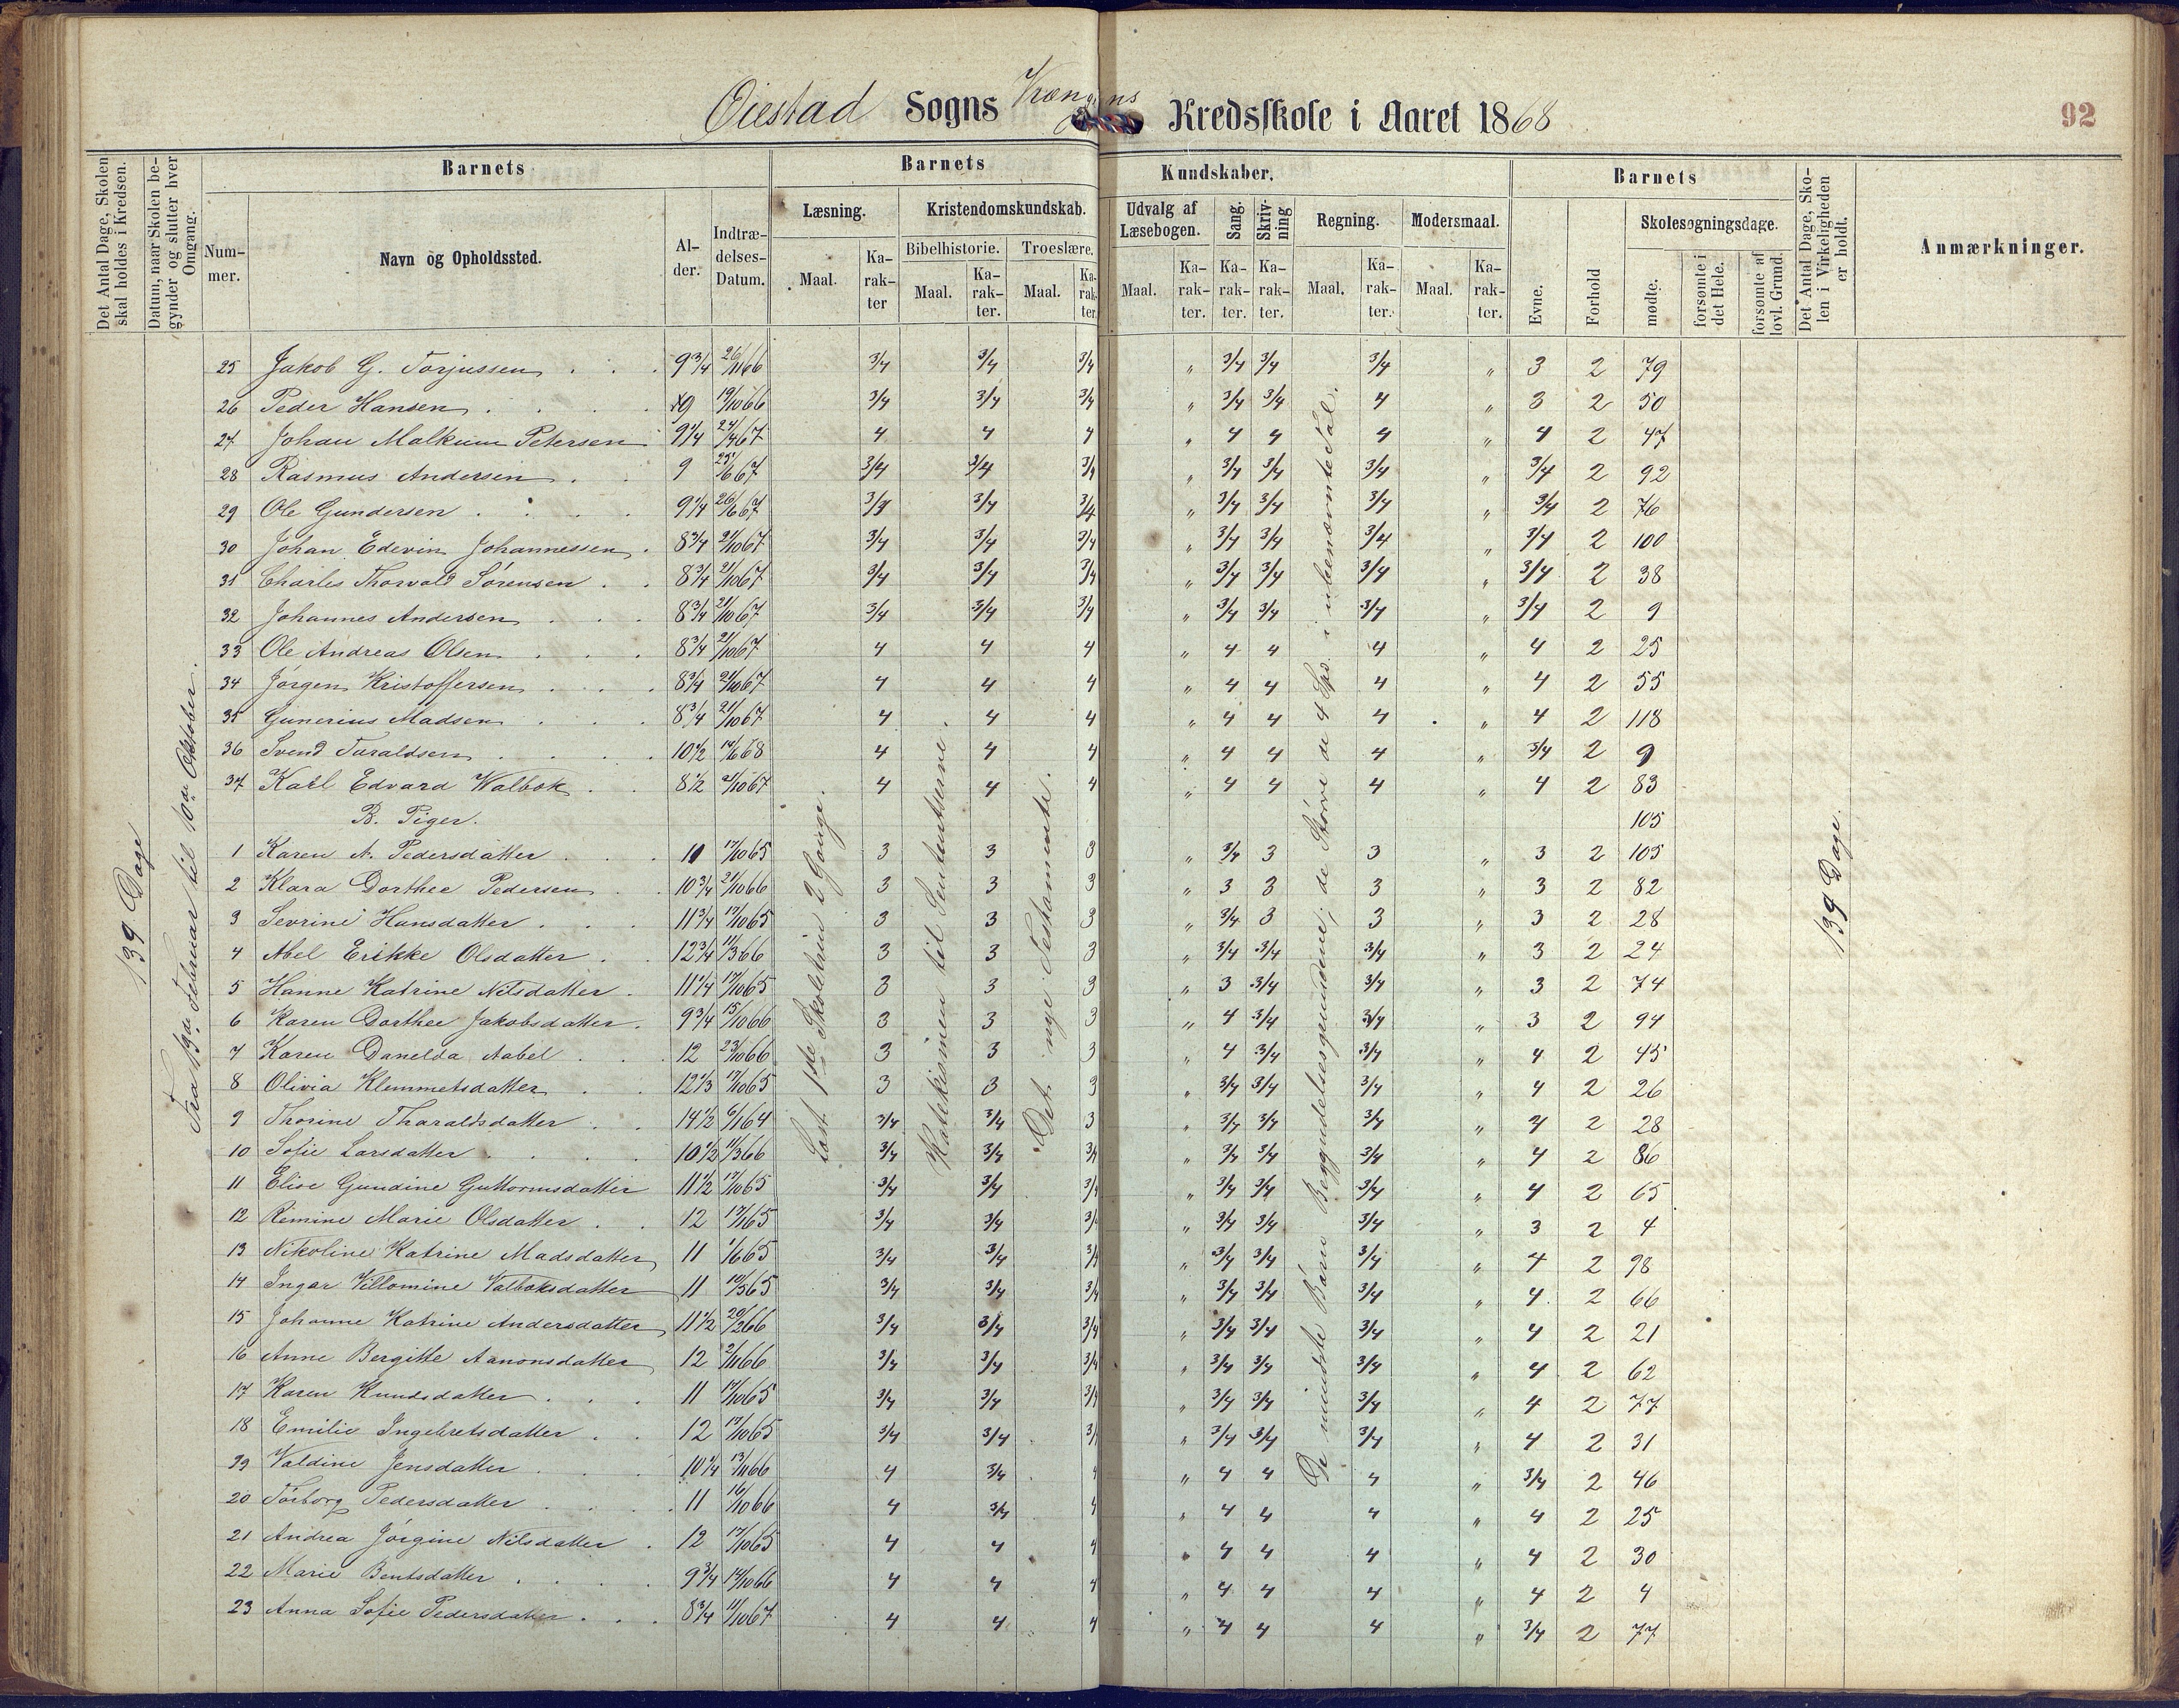 Øiestad Sogns Kredsskole i Aaret 1868
92
Det Antal Dage, Skolen skal holdes i Kredsen.
Datum, naar Skolen begynder og slutter hver Omgang.
Barnets
Nummer.
Navn og Opholdssted.
Alder.
Indtrædelses-Datum.
Barnets Kundskaber.
Læsning.
Maal.
Karakter
Kristendomskundskab.
Bibelhistorie.
Maal.
Karakter.
Troeslære.
Maal.
Karakter.
Udvalg af Læsebogen.
Maal.
Karakter.
Sang.
Karakter.
Skrivning
Karakter.
Regning.
Maal.
Karakter.
Modersmaal.
Maal.
Karakter.
Barnets
Evne.
Forhold
Skolesøgningsdage.
mødte.
forsømte i det Hele.
forsømte af lovl. Grund.
Det Antal Dage, Skolen i Virkeligheden er holdt.
Anmærkninger.
139 Dage
Fra 13de Februar til 10de Oktober.
Læst 1ste Skoletrin 2 Gange.
Katekismen til Sententserne.
Det nye Testamente.
De mindste Børn Begyndelsesgrundene; de Større de 4 Sps. i ubenævnte Tal.
139 Dage.
25 Jakob G. Torjussen 9 3/4 26/11 66 3/4 3/4 3/4 " 3/4 3/4 3/4 " 3 2 79
26 Peder Hansen 9 19/10 66 3/4 3/4 3/4 " 3/4 3/4 4 " 3 2 50
27 Johan Malkum Petersen 9 1/4 24/4 67 4 4 4 " 4 4 4 " 4 2 47
28 Rasmus Andersen 9 25/6 67 3/4 3/4 3/4 " 3/4 3/4 3/4 " 3/4 2 92
29 Ole Gundersen 9 1/4 26/6 67 3/4 3/4 3/4 " 3/4 3/4 3/4 " 3/4 2 76
30 Johan Edevin Johannessen 8 3/4 21/10 67 3/4 3/4 3/4 " 3/4 3/4 3/4 " 3/4 2 100
31 Charles Thorvald Sørensen 8 3/4 21/10 67 3/4 3/4 3/4 " 3/4 3/4 3/4 " 3/4 2 38
32 Johannes Andersen 8 3/4 21/10 67 3/4 3/4 3/4 " 3/4 3/4 3/4 " 3/4 2 9
33 Ole Andreas Olsen 8 3/4 21/10 67 4 4 4 " 4 4 4 " 4 2 25
34 Jørgen Kristoffersen 8 3/4 21/10 67 4 4 4 " 4 4 4 " 4 2 55
35 Gunerius Madsen 8 3/4 21/10 67 4 4 4 " 4 4 4 " 4 2 118
36 Svend Taraldsen 10 1/2 10/6 68 4 4 4 " 4 4 4 " 3/4 2 9
37 Karl Edvard Walbok 8 1/2 21/10 67 4 4 4 " 4 4 4 " 4 2 83
B. Piger. 105
1 Karen A. Pedersdatter 10 17/10 65 3 3 3 " 3/4 3 3 " 3 2 105
2 Klara Dorthee Pedersen 10 3/4 21/10 66 3 3 3 " 3 3 3 " 3 2 82
3 Sevrine Hansdatter 11 3/4 17/10 65 3 3 3 " 3/4 3 3 " 3 2 28
4 Abel Erikke Olsdatter 12 3/4 11/3 66 3 3 3 " 3/4 3/4 3/4 " 3 2 24
5 Hanne Katrine Nilsdatter 11 1/4 17/10 65 3 3 3 " 3 3/4 3/4 " 3 2 74
6 Karen Dorthee Jakobsdatter 9 3/4 15/10 66 3 3 3 " 4 3/4 3/4 " 3 2 94
7 Karen Danelda Aabel 12 23/10 66 3 3 3 " 4 3/4 3/4 " 4 2 45
8 Olivia Klemmetsdatter 12 1/3 17/10 65 3 3 3 " 3/4 3/4 3/4 " 4 2 26
9 Thorine Tharaldsdatter 14 1/2 6/1 64 3/4 3/4 3 " 3/4 3/4 3/4 " 4 2 28
10 Sofie Larsdatter 10 1/2 11/3 66 3/4 3/4 3/4 " 3/4 3/4 3/4 " 4 2 86
11 Elise Gundine Guttormsdatter 11 1/2 17/10 65 3/4 3/4 3/4 " 3/4 3/4 3/4 " 4 2 65
12 Rimine Marie Olsdatter 12 17/1 65 3/4 3/4 3/4 " 3/4 3/4 3/4 " 3 2 4
13 Nikoline Katrine Madsdatter 11 1/6 65 3/4 3/4 3/4 " 3/4 3/4 3/4 " 4 2 98
14 Ingar Villomine Valboksdatter 11 10/5 65 3/4 3/4 3/4 " 3/4 3/4 3/4 " 4 2 66
15 Johanne Katrine Andersdatter 11 1/2 20/2 66 3/4 3/4 3/4 " 3/4 3/4 3/4 " 4 2 21
16 Anne Bergitte Aanonsdatter 12 2/11 66 3/4 3/4 3/4 " 3/4 3/4 3/4 " 4 2 62
17 Karen Knudsdatter 11 17/10 65 3/4 3/4 3/4 " 3/4 3/4 3/4 " 4 2 77
18 Emilie Ingebretsdatter 12 17/10 65 3/4 3/4 3/4 " 3/4 3/4 3/4 " 4 2 31
19 Valdine Jensdatter 10 1/4 13/11 66 4 3/4 4 " 4 4 4 " 3/4 2 46
20 Torborg Pedersdatter 11 16/10 66 4 3/4 4 " 4 4 4 " 4 2 25
21 Andrea Jørgine Nilsdatter 12 17/10 65 4 4 4 " 4 4 4 " 4 2 30
22 Marie Bentsdatter 9 3/4 14/10 66 4 4 4 " 4 4 4 " 4 2 4
23 Anna Sofie Pedersdatter 8 3/4 11/10 67 4 4 4 " 4 4 4 " 3/4 2 77